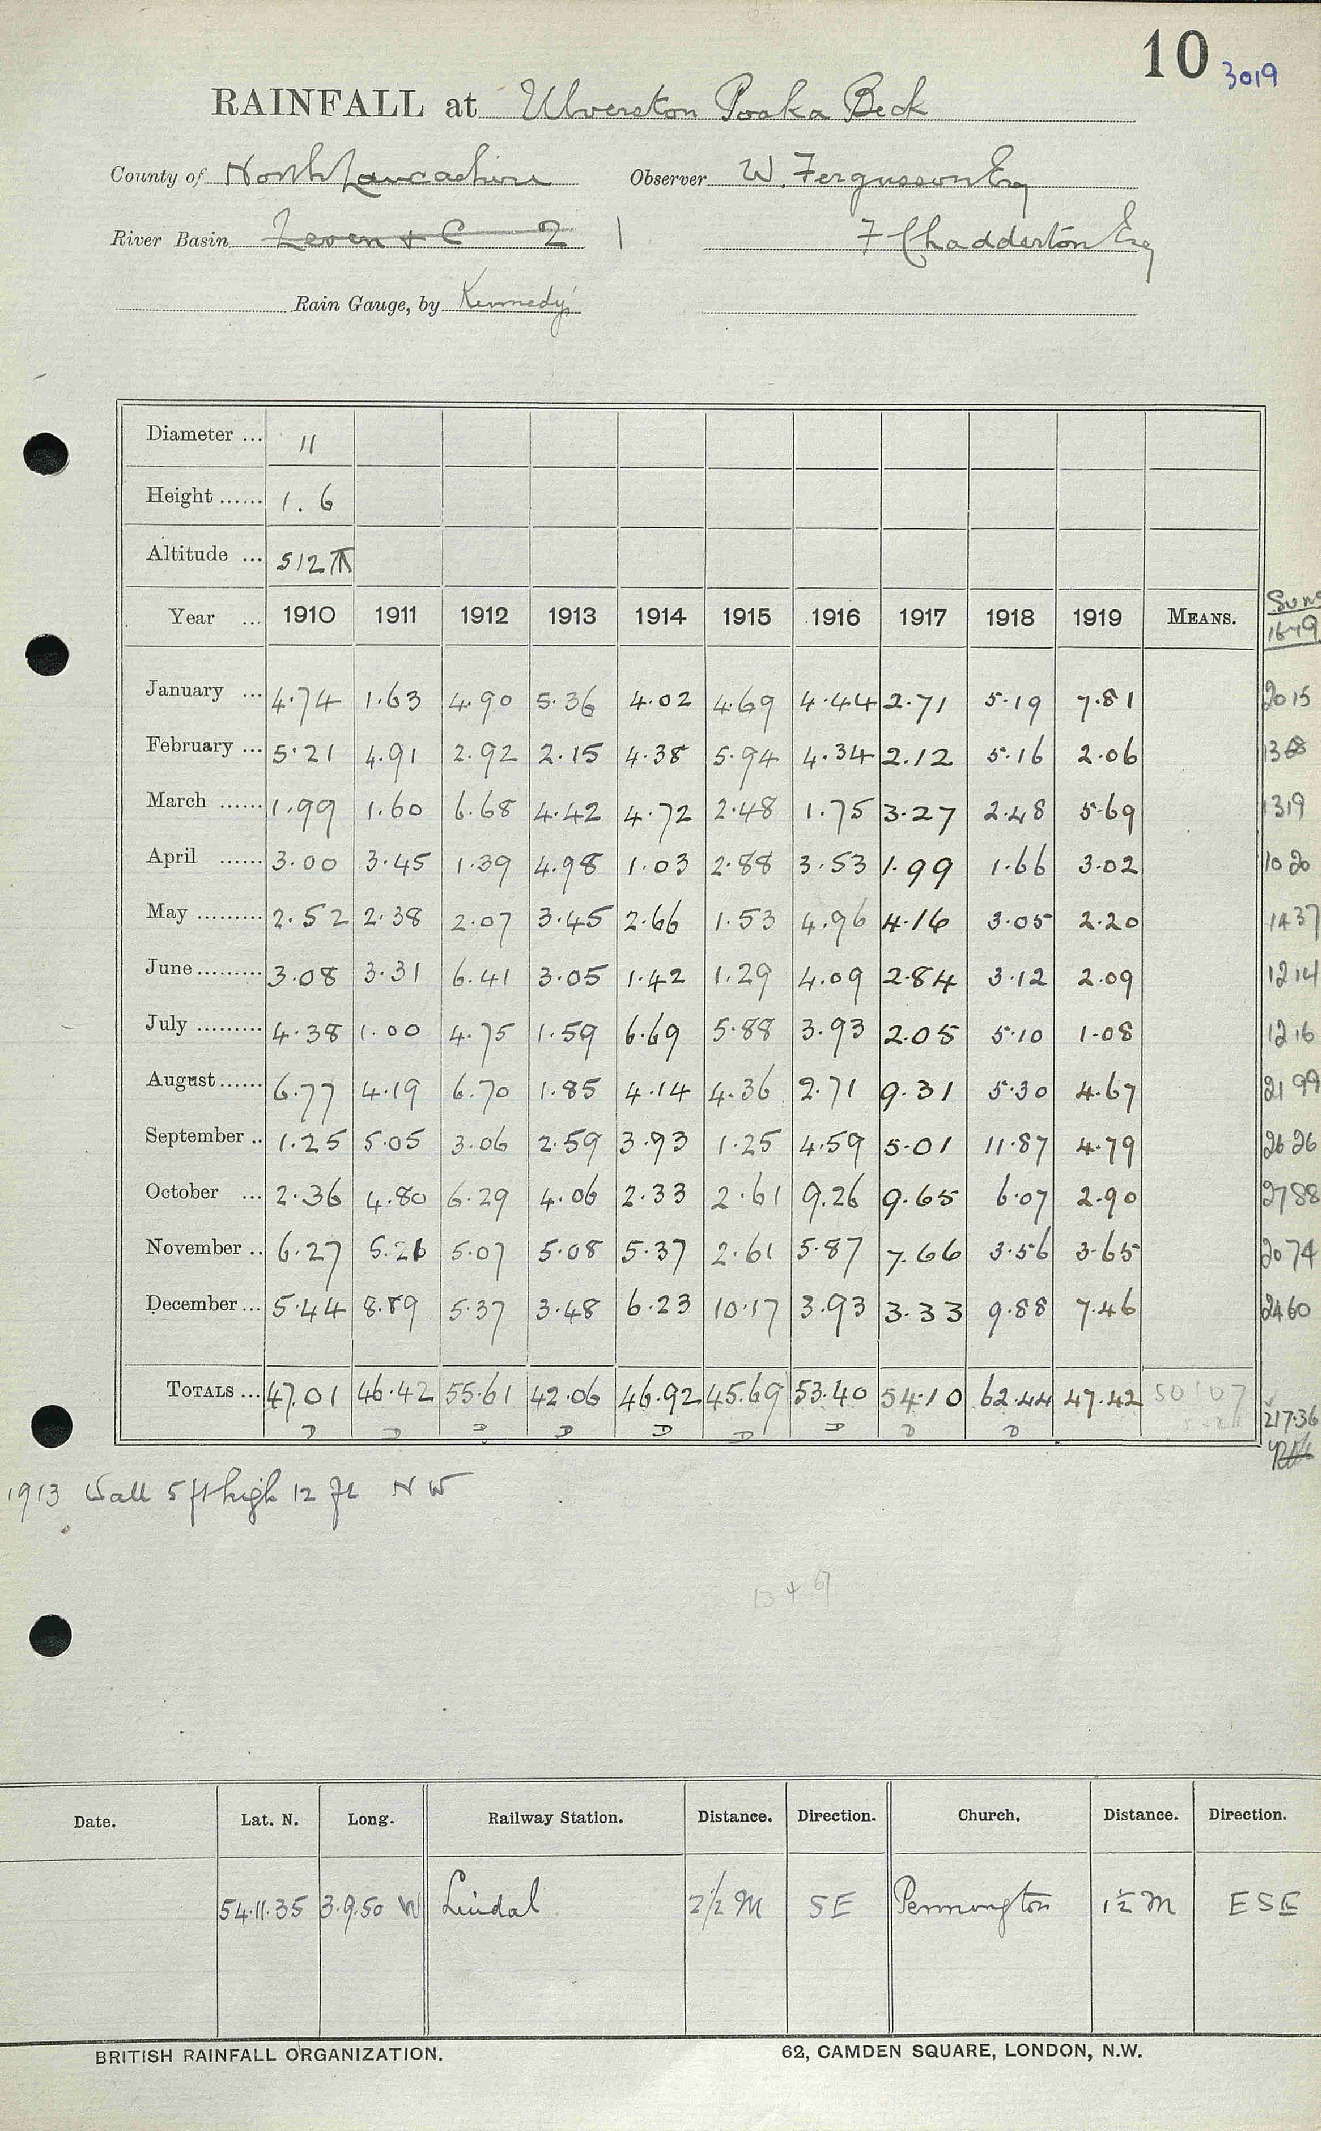 10 3019
RAINFALL at Ulverston Poaka Beck
County of North Lancashire Observer W. Fergusson Esq
River Basin Leven & C 2 1 F Chadderton Esq
Rain Gauge, by Kennedy
Diameter ... 11
Height ...... 1. 6
Altitude ... 512
Year ... 1910 1911 1912 1913 1914 1915 1916 1917 1918 1919 MEANS. Sums 16-19
January ... 4.74 1.63 4.90 5.36 4.02 4.69 4.44 2.71 5.19 7.81 2015
February ... 5.21 4.91 2.92 2.15 4.38 5.94 4.34 2.12 5.16 2.06 1368
March ...... 1.99 1.60 6.68 4.42 4.72 2.48 1.75 3.27 2.48 5.69 1319
April ...... 3.00 3.45 1.39 4.98 1.03 2.88 3.53 1.99 1.66 3.02 1020
May ......... 2.52 2.38 2.07 3.45 2.66 1.53 4.96 4.16 3.05 2.20 1437
June ......... 3.08 3.31 6.41 3.05 1.42 1.29 4.09 2.84 3.12 2.09 1214
July ......... 4.38 1.00 4.75 1.59 6.69 5.88 3.93 2.05 5.10 1.08 1216
August ...... 6.77 4.19 6.70 1.85 4.14 4.36 2.71 9.31 5.30 4.67 2199
September .. 1.25 5.05 3.06 2.59 3.93 1.25 4.59 5.01 11.87 4.79 2626
October ... 2.36 4.80 6.29 4.06 2.33 2.61 9.26 9.65 6.07 2.90 2788
November .. 6.27 5.21 5.07 5.08 5.37 2.61 5.87 7.66 3.56 3.65 2074
December ... 5.44 8.89 5.37 3.48 6.23 10.17 3.93 3.33 9.88 7.46 2460
TOTALS ... 47.01 46.42 55.61 42.06 46.92 45.69 53.40 54.10 62.44 47.42 50107 217.36
D D D D D D D D D
1913 Wall 5 ft high 12 ft N W
13 + 67
Date. Lat. N. Long. Railway Station. Distance. Direction. Church. Distance. Direction.
54.11.35 3.9.50 W Lindal 2½ M SE Pennington 1½ M E S E
BRITISH RAINFALL ORGANIZATION. 62, CAMDEN SQUARE, LONDON, N.W.